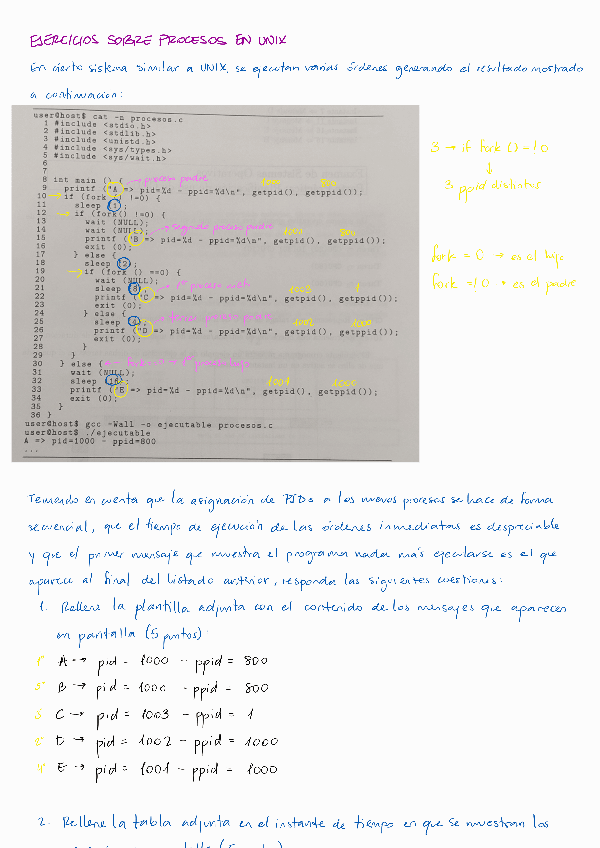 EJERCICIOS SOBRE PROCESOS EN UNIX
En cierto sistema similar a UNIX, se ejecutan varias órdenes generando el resultado mostrado
a continuación:
user@host$ cat -n procesos.c
1 #include <stdio.h>
2 #include <stdlib.h>
3 #include <unistd.h>
4 #include <sys/types.h>
5 #include <sys/wait.h>
6
7
8 int main () { → proceso padre
1000 800
9 printf ("A => pid=%d - ppid=%d\n", getpid(), getppid());
10 if (fork() !=0) {
11 sleep (1);
12 if (fork() !=0) {
13 wait (NULL);
14 wait (NULL); segundo proceso padre 1000 800
15 printf ("B => pid=%d - ppid=%d\n", getpid(), getppid());
16 exit (0);
17 } else {
18 sleep (2);
19 if (fork () ==0) {
20 wait (NULL);
21 sleep (8); 1002 1
22 printf ("C => pid=%d - ppid=%d\n", getpid(), getppid());
23 exit (0);
24 } else {
25 sleep (4); tercer proceso padre 1002 1000
26 printf ("D => pid=%d - ppid=%d\n", getpid(), getppid());
27 exit (0);
28 }
29 }
30 } else {
31 wait (NULL);
32 sleep (16); 1001 1000
33 printf ("E => pid=%d - ppid=%d\n", getpid(), getppid());
34 exit (0);
35 }
36 }
user@host$ gcc -Wall -o ejecutable procesos.c
user@host$ ./ejecutable
A => pid=1000 - ppid=800
...
3 → if fork () = ! 0
↓
3 ppid distintos
fork = 0 → es el hijo
fork = ! 0 → es el padre
Teniendo en cuenta que la asignación de PIDs a los nuevos procesos se hace de forma
secuencial, que el tiempo de ejecución de las órdenes inmediatas es despreciable
y que el primer mensaje que muestra el programa nada más ejecutarse es el que
aparece al final del listado anterior, responda las siguientes cuestiones:
1. Rellene la plantilla adjunta con el contenido de los mensajes que aparecen
en pantalla (5 puntos):
1º A → pid = 1000 - ppid = 800
5º B → pid = 1000 - ppid = 800
3º C → pid = 1003 - ppid = 1
2º D → pid = 1002 - ppid = 1000
4º E → pid = 1001 - ppid = 1000
2. Rellene la tabla adjunta en el instante de tiempo en que se muestran los